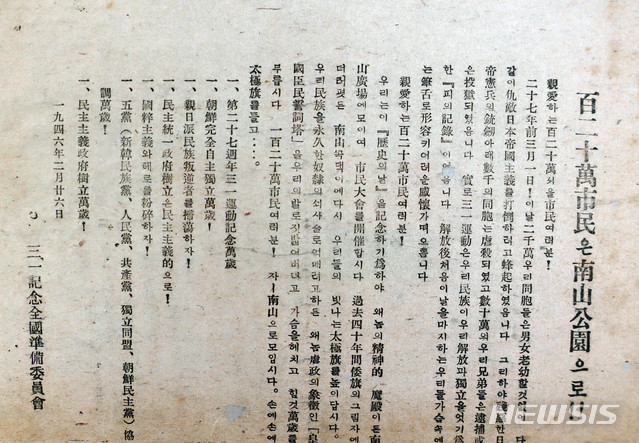 百二十萬市民은南山公園으로!
親愛하는百二十萬서울市民여러분!
二十七年前三月一日!이날二千萬우리同胞들은男女老幼할것없이、다
같이仇敵日本帝國主義를打倒하려고蜂起하였읍니다 그리하야殘虐한日
帝憲兵의銃劍아래數千의同胞는虐殺되였고數十萬의우리兄弟들은逮捕或
은投獄되였읍니다 實로三一運動은우리民族이우리解放과獨立을엇기爲
한『피의記錄』이였읍니다 解放後처음이날을마지하는우리들가슴속에
는筆舌로形容키어려운感懷가떠오릅니다
親愛하는百二十萬市民여러분!
우리는이『歷史의날』을記念하기爲하야 왜놈의精神的 魔殿이든南
山廣場에모이여 市民大會를開催합시다 過去四十年間倭旗의그림자에
더러폇든 南山꼭댁이에다시 우리들의 빗나는太極旗를높이답시다。
우리民族을永久한奴隷의쇠사슬로억매려고하든 왜놈虐政의象徵인『皇
國臣民誓詞塔』을우리의발로짓밟어버리고 가슴을헤치고 힘껏萬歲를
부릅시다 一百二十萬市民여러분! 자―南山으로모입시다。손에손에
太極旗를들고⋯⋯。
一、第二十七週年三一運動記念萬歲
一、朝鮮完全自主獨立萬歲!
一、親日派民族叛逆者를掃蕩하자!
一、民主統一政府樹立은民主主義的으로!
一、國粹主義와테로를粉碎하자!
一、民主主義政府樹立萬歲!
一、五黨(新韓民族黨、人民黨、共產黨、獨立同盟、朝鮮民主黨)協
調萬歲!
一九四六年二月廿六日
三一記念全國準備委員會
NEWSIS